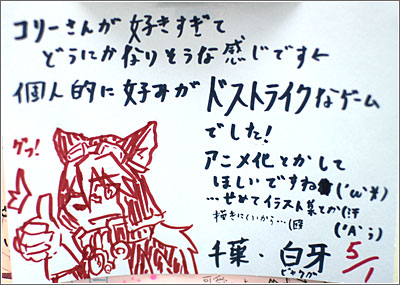 コリーさんが好きすぎて
どうにかなりそうな感じです←
個人的に好みがドストライクなゲーム
でした!
アニメ化とかして
ほしいですね(´ω`*)
…せめてイラスト集とか(汗
描きにくいから…(殴
グッ!
千葉・白牙
ビャクガ
5/1